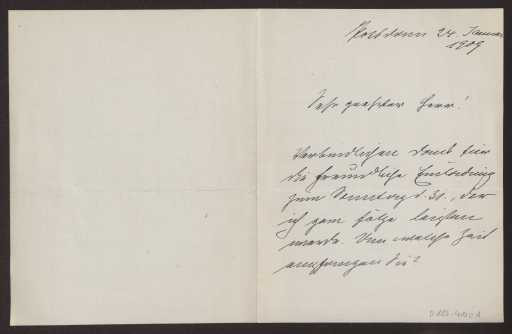 Potsdam 24. Januar
1909
Sehr geehrter Herr!
Verbindlichen Dank für
die freundliche Einladung
zum Sonntag d. 31., der
ich gern folge leisten
werde. Um welche Zeit
empfangen Sie?